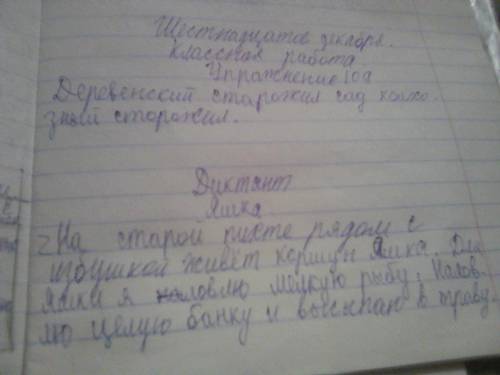 Шестнадцатое декабря.
Классная работа.
Упражнение 109
Деревенский старожил сад колхо-
зный сторожил.
Диктант
Яшка.
На старой пихте рядом с
избушкой живёт коршун Яшка. Для
Яшки я наловлю мелкую рыбу. Налов-
лю целую банку и высыпаю в траву.